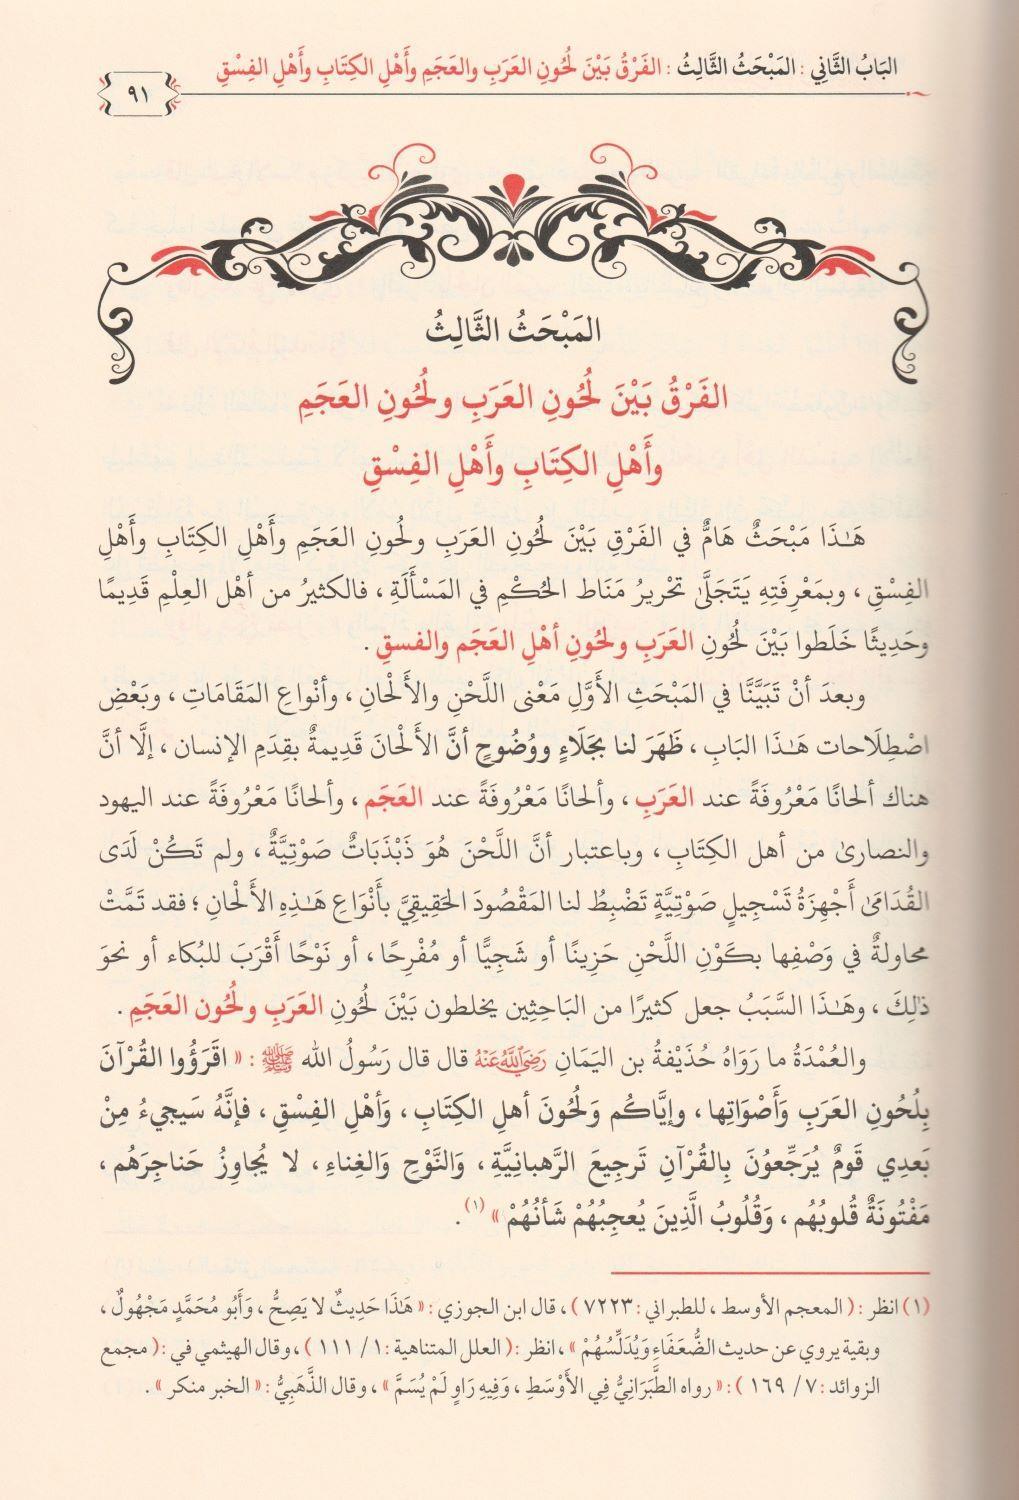 البَابُ الثَّانِي : المَبْحَثُ الثَّالِثُ : الفَرْقُ بَيْنَ لُحُونِ العَرَبِ والعَجَمِ وأَهْلِ الكِتَابِ وأَهْلِ الفِسْقِ
٩١
المَبْحَثُ الثَّالِثُ
الفَرْقُ بَيْنَ لُحُونِ العَرَبِ ولُحُونِ العَجَمِ
وأَهْلِ الكِتَابِ وأَهْلِ الفِسْقِ
هَـٰذَا مَبْحَثٌ هَامٌّ في الفَرْقِ بَيْنَ لُحُونِ العَرَبِ ولُحُونِ العَجَمِ وأَهْلِ الكِتَابِ وأَهْلِ
الفِسْقِ ، وبمَعْرِفَتِهِ يَتَجَلَّىٰ تحْرِيرُ مَنَاط الحُكْمِ في المَسْأَلَةِ ، فالكثيرُ من أهْل العِلْمِ قَدِيمًا
وحَدِيثًا خَلَطُوا بَيْنَ لُحُونِ العَرَبِ ولحُونِ أهْلِ العَجَم والفسقِ .
وبعدَ أنْ تَبَيَّنَّا في المَبْحَثِ الأَوَّلِ مَعْنى اللَّحْنِ والأَلْحانِ ، وأنْواعِ المَقَامَاتِ ، وبَعْضِ
اصْطِلَاحات هَـٰذَا البَابِ ، ظَهَرَ لنا بجَلَاءٍ ووُضُوحٍ أنَّ الأَلْحَانَ قَدِيمةٌ بقِدَمِ الإنسان ، إلَّا أنَّ
هناك ألحانًا مَعْرُوفَةً عند العَرَبِ ، وألحانًا مَعْرُوفَةً عند العَجَم ، وألحانًا مَعْرُوفَةً عند اليهود
والنصارىٰ من أهل الكِتَابِ ، وباعتبار أنَّ اللَّحْنَ هُوَ ذَبْذَبَاتٌ صَوْتِيَّةٌ ، ولم تَكُنْ لَدَى
القُدَامَىٰ أَجْهِزَةُ تَسْجِيلٍ صَوْتِيَّةٍ تَضْبِطُ لنا المَقْصُودَ الحَقِيقِيَّ بأَنْوَاعِ هَـٰذِهِ الأَلْحَانِ ؛ فقد تَمَّتْ
محاولةٌ في وَصْفِها بكَوْنِ اللَّحْنِ حَزِينًا أو شَجِيًّا أو مُفْرِحًا ، أو نَوْحًا أَقْرَبَ للبُكاء أو نحوَ
ذٰلِكَ ، وهَـٰذَا السَّبَبُ جعل كثيرًا من البَاحِثِين يخلطون بَيْنَ لُحُونِ العَرَبِ ولُحُون العَجَمِ .
والعُمْدَةُ ما رَوَاهُ حُذَيْفةُ بن اليَمَانِ رَضِيَ اللَّهُ عَنْهُ قال قال رَسُولُ الله ﷺ : « اقْرَؤُوا القُرْآنَ
بِلُحُونِ العَرَبِ وَأَصْوَاتِها ، وإيَّاكُم وَلُحُونَ أهلِ الكِتَابِ ، وَأهْلِ الفِسْقِ ، فإنَّهُ سَيجيءُ مِنْ
بَعدِي قَومٌ يُرَجِّعوُنَ بِالقُرْآنِ تَرجِيعَ الرَّهبانِيَّةِ ، وَالنَّوْحِ وَالغِناءِ ، لا يُجاوِزُ حَناجِرَهُم ،
مَفْتُونَةٌ قُلوبُهُم ، وَقُلُوبُ الَّذِينَ يُعجِبُهُمْ شَأنُهُمْ » (١) .
(١) انظر : ( المعجم الأوسط ، للطبراني : ٧٢٢٣ ) ، قال ابن الجوزي : « هَـٰذَا حَدِيثٌ لا يَصِحُّ ، وَأَبُو مُحَمَّدٍ مَجْهُولٌ ،
وبقية يروي عن حديث الضُّعَفَاءِ وَيُدَلِّسُهُمْ » ، انظر : ( العلل المتناهية : ١/ ١١١ ) ، وقال الهيثمي في : ( مجمع
الزوائد : ٧/ ١٦٩ ) : « رواه الطَّبَرَانِيُّ فِي الأَوْسَطِ ، وَفِيهِ رَاوٍ لَمْ يُسَمَّ » ، وقال الذَّهَبِيُّ : « الخبر منكر » .